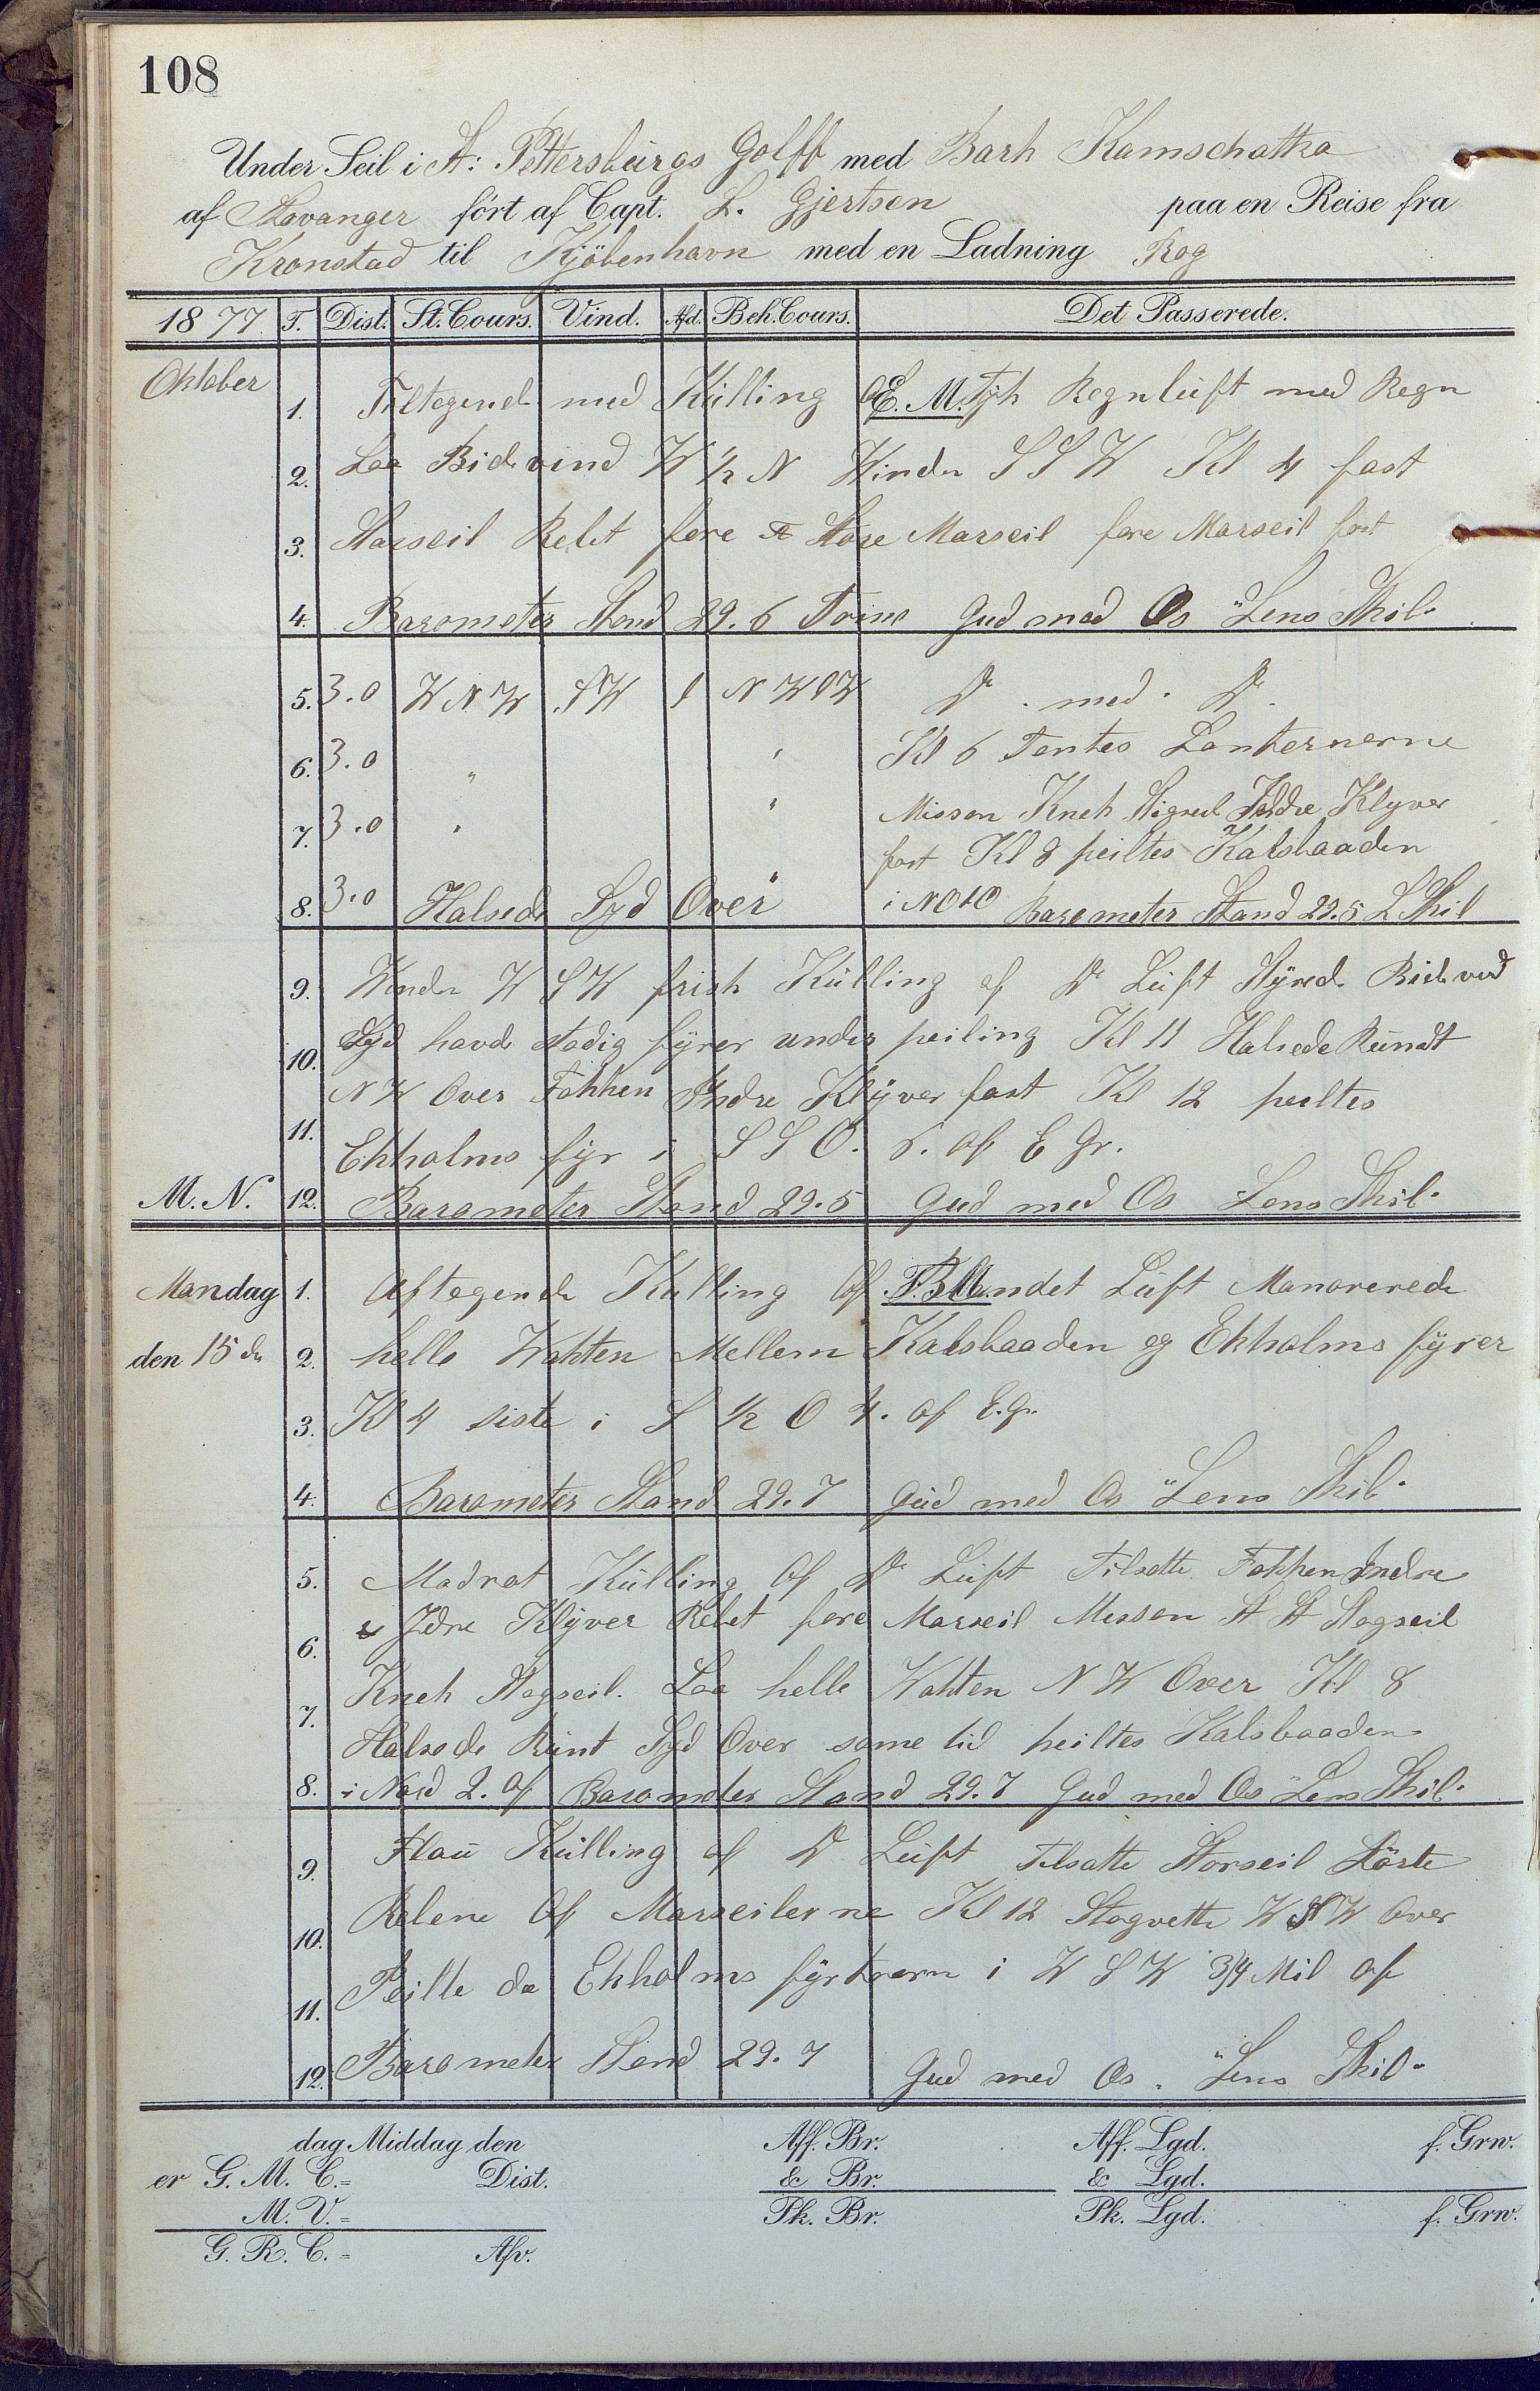 108
Under Seil i St: Pettersburgs Golff med Bark Kamschatka
af Stavanger ført af Capt. L. Gjertsen paa en Reise fra
Kronstad til Kjöbenhavn med en Ladning Rog
1877 T. Dist. St. Cours. Vind. Afd. Beh. Cours. Det Passerede.
Oktober 1. Tiltagende med Kulling E. M. Tyk Regnluft med Regn
2. Laa Bidevind W 1/2 N Winden S S W Kl 4 fast
3. Storseil Rebet fore Store Marseil fore Marseil fast
4. Barometer Stand 29.6 Gud med Os "Lens Skib"
5. 3.0 W N W SW 1 N W t W Do med Do
6. 3.0 " " Kl 6 Tentes Lanternerne
7. 3.0 " " Misson Knek Stigseil Indre Klyver
fast Kl 8 peiltes Kalsbaaden
8. 3.0 Halsede Syd Over " i NOtO Barometer Stand 29.5 L Skib
9. Winden W S W frisk Kulling af Do Luft Styred Bidevind
10. Syd havde stadig fyrer under peiling Kl 11 Halsede Rundt
N W Over Fokken Indre Klyver fast Kl 12 peiltes
11. Ekholms fyr i S S O. 6. af E Gr.
M. N. 12. Barometer Stand 29.5 Gud med Os Lens Skib"
Mandag 1. Aftagende Kulling Af F. M. Blandet Luft Manøverede
den 15de 2. hele Wakten Mellem Kalsbaaden og Ekholms fyrer
3. Kl 4 siste i S 1/2 O 4. af E.G.
4. Barometer Stand 29.7 Gud med Os "Lens Skib"
5. Madrat Kulling Af Do Luft Tilsatte Fokken Indre
6. & Ydre Klyver Rebet fore Marseil Messan St St Stagseil
7. Knek Stagseil. Laa helle Wakten N W Over Kl 8
Halsede Runt Syd Over same tid peiltes Kalsbaaden
8. i Nord 2. af Barometer Stand 29.7 Gud med Os "Lens Skib"
9. Flau Kulling af Do Luft Tilsatte Storseil Löste
10. Rebene Af Marseilerne Kl 12 Stagvente W S W Over
11. Peilte da Ekholms fyrtaarn i W S W 3/4 Mil af
12. Barometer Stand 29.7 Gud med Os "Lens Skib"
dag Middag den Aff. Br. Aff. Lgd. f. Grw.
er G. M. C.= Dist. & Br. & Lgd.
M. V.= Pk. Br. Pk. Lgd. f. Grw.
G. R. C.= Afv.